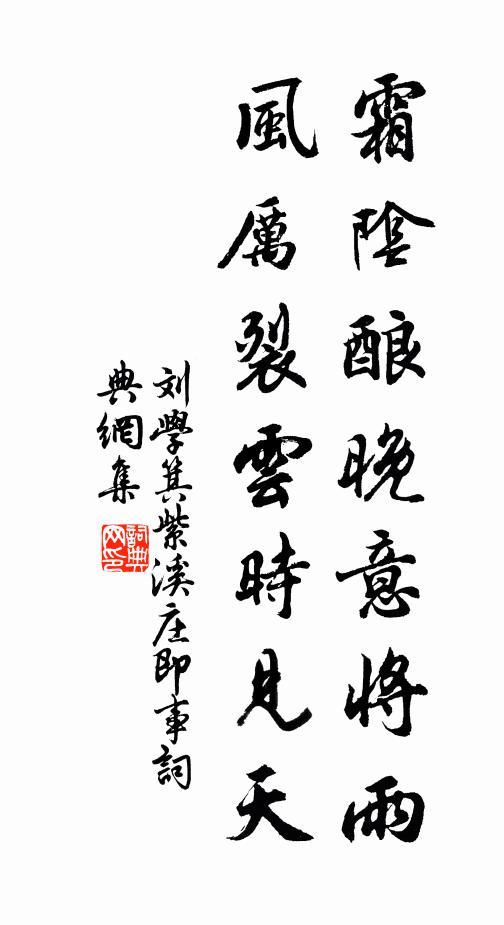 霜陰酿晚意將雨
風厲裂雲時見天
刘學箕紫溪庄即事詞
典網集
詞典
网印